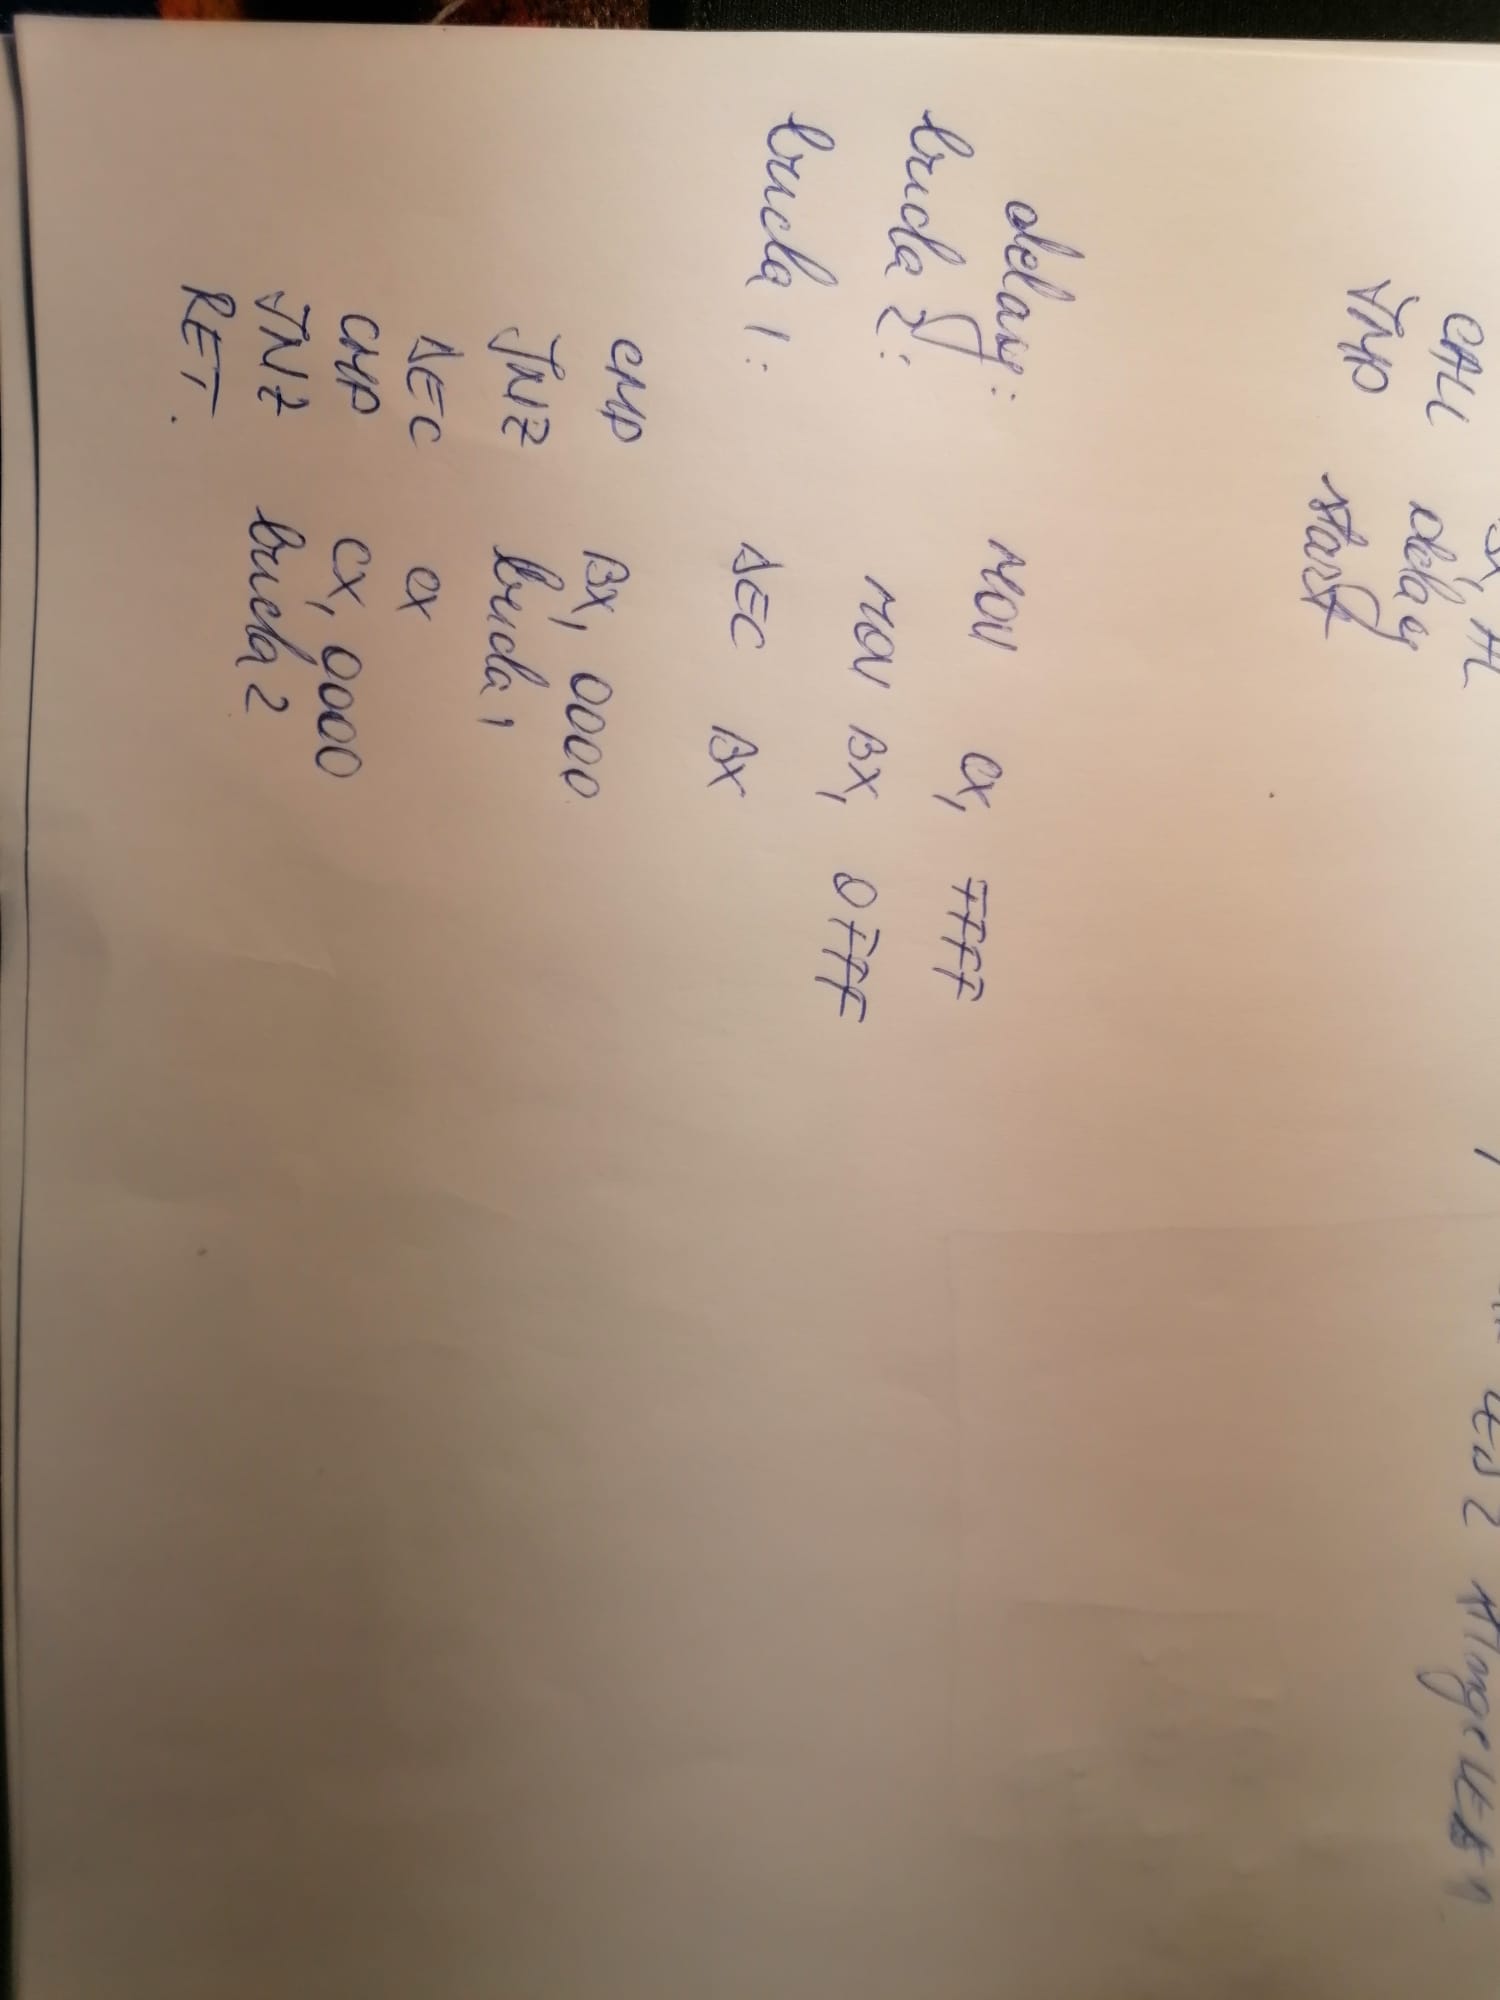 LED2 stinge LED1
CALL delay
JMP start
delay: MOV CX, FFFF
bucla 2: MOV BX, 0FFF
bucla 1: DEC BX
CMP BX, 0000
JNZ bucla 1
DEC CX
CMP CX, 0000
JNZ bucla 2
RET.